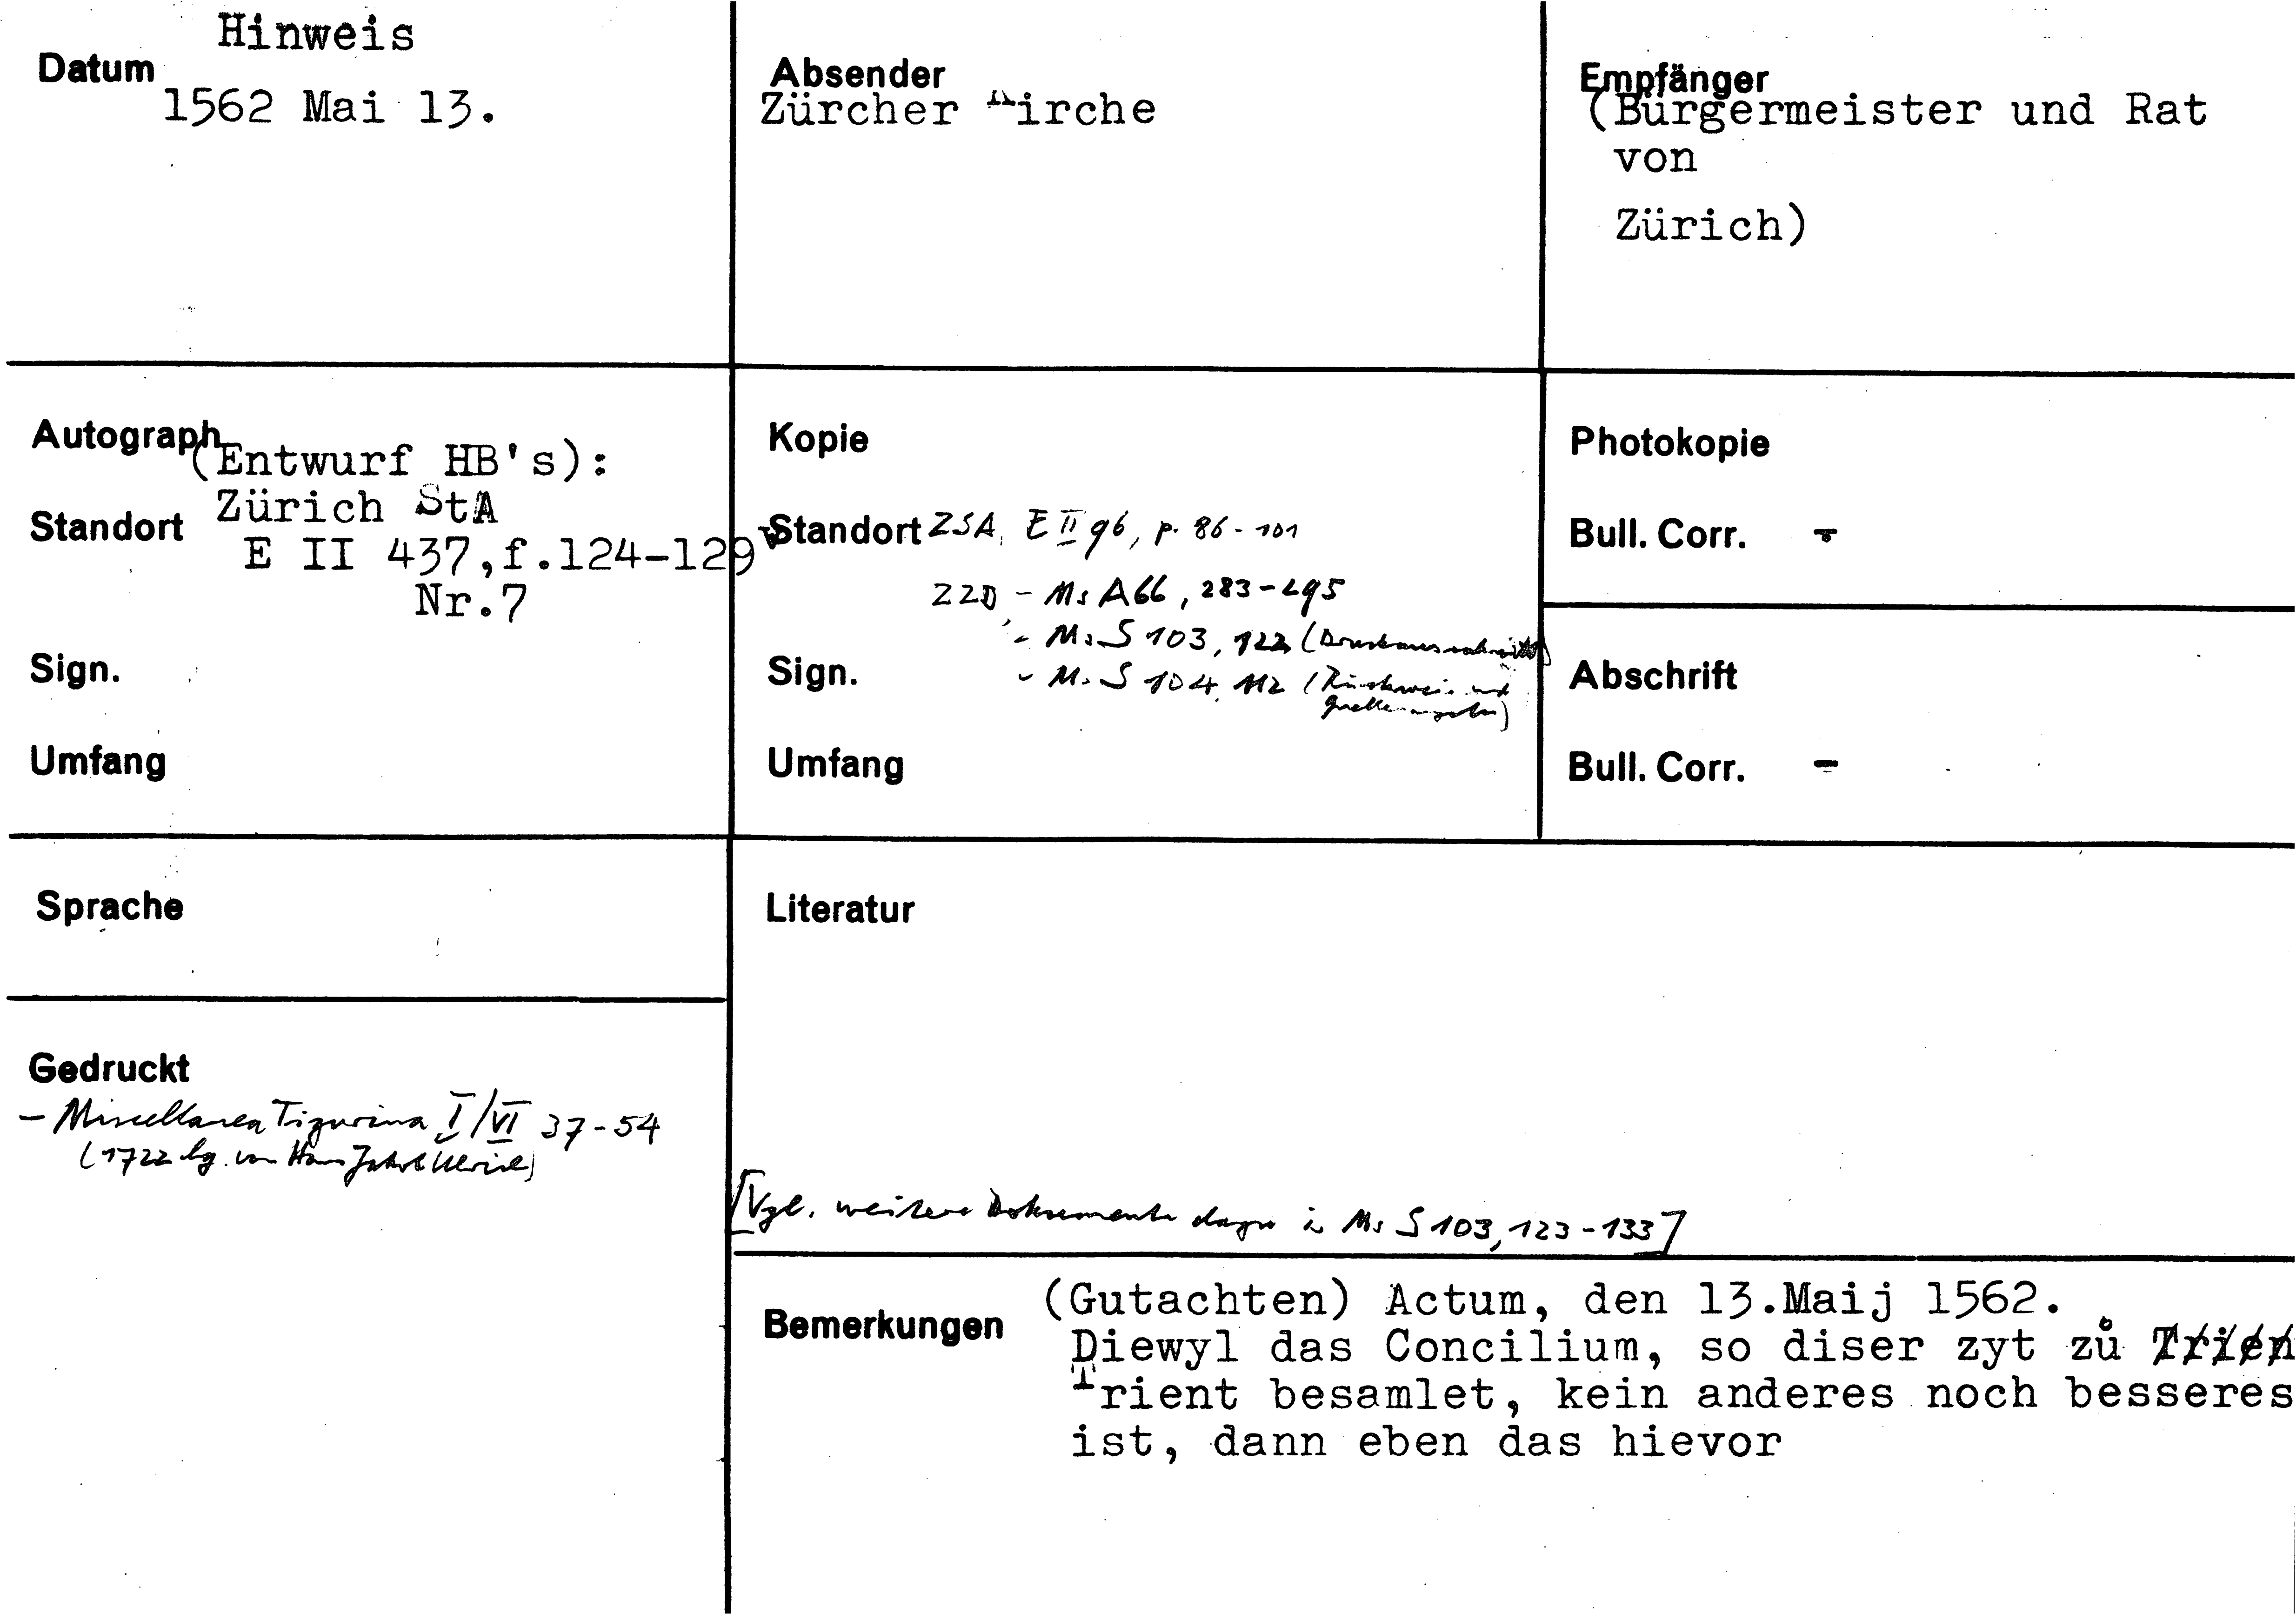 Hinweis
Datum
1562 Mai 13.
Absender
Zürcher Kirche
Empfänger
(Bürgermeister und Rat
von
Zürich)
Autograph
(Entwurf HB's):
Standort
Zürich StA
E II 437,f.124-129v
Nr.7
Sign.
Umfang
Kopie
Standort ZSA, E II 96, p. 86-101
ZZB - Ms A 66, 283-295
- Ms S 103, 122 (Druckausschnitt)
Sign.
- Ms S 104, 112 (Rückweis und
Quellenangabe)
Umfang
Photokopie
Bull. Corr. -
Abschrift
Bull. Corr. -
Sprache
Gedruckt
- Miscellanea Tigurina I/VI 37-54
(1722 hg. von Hans Jakob Ulrich)
Literatur
[Vgl. weitere Dokumente dazu in Ms S 103, 123-133]
Bemerkungen
(Gutachten) Actum, den 13.Maij 1562.
Diewyl das Concilium, so diser zyt zů Trien
Trient besamlet, kein anderes noch besseres
ist, dann eben das hievor